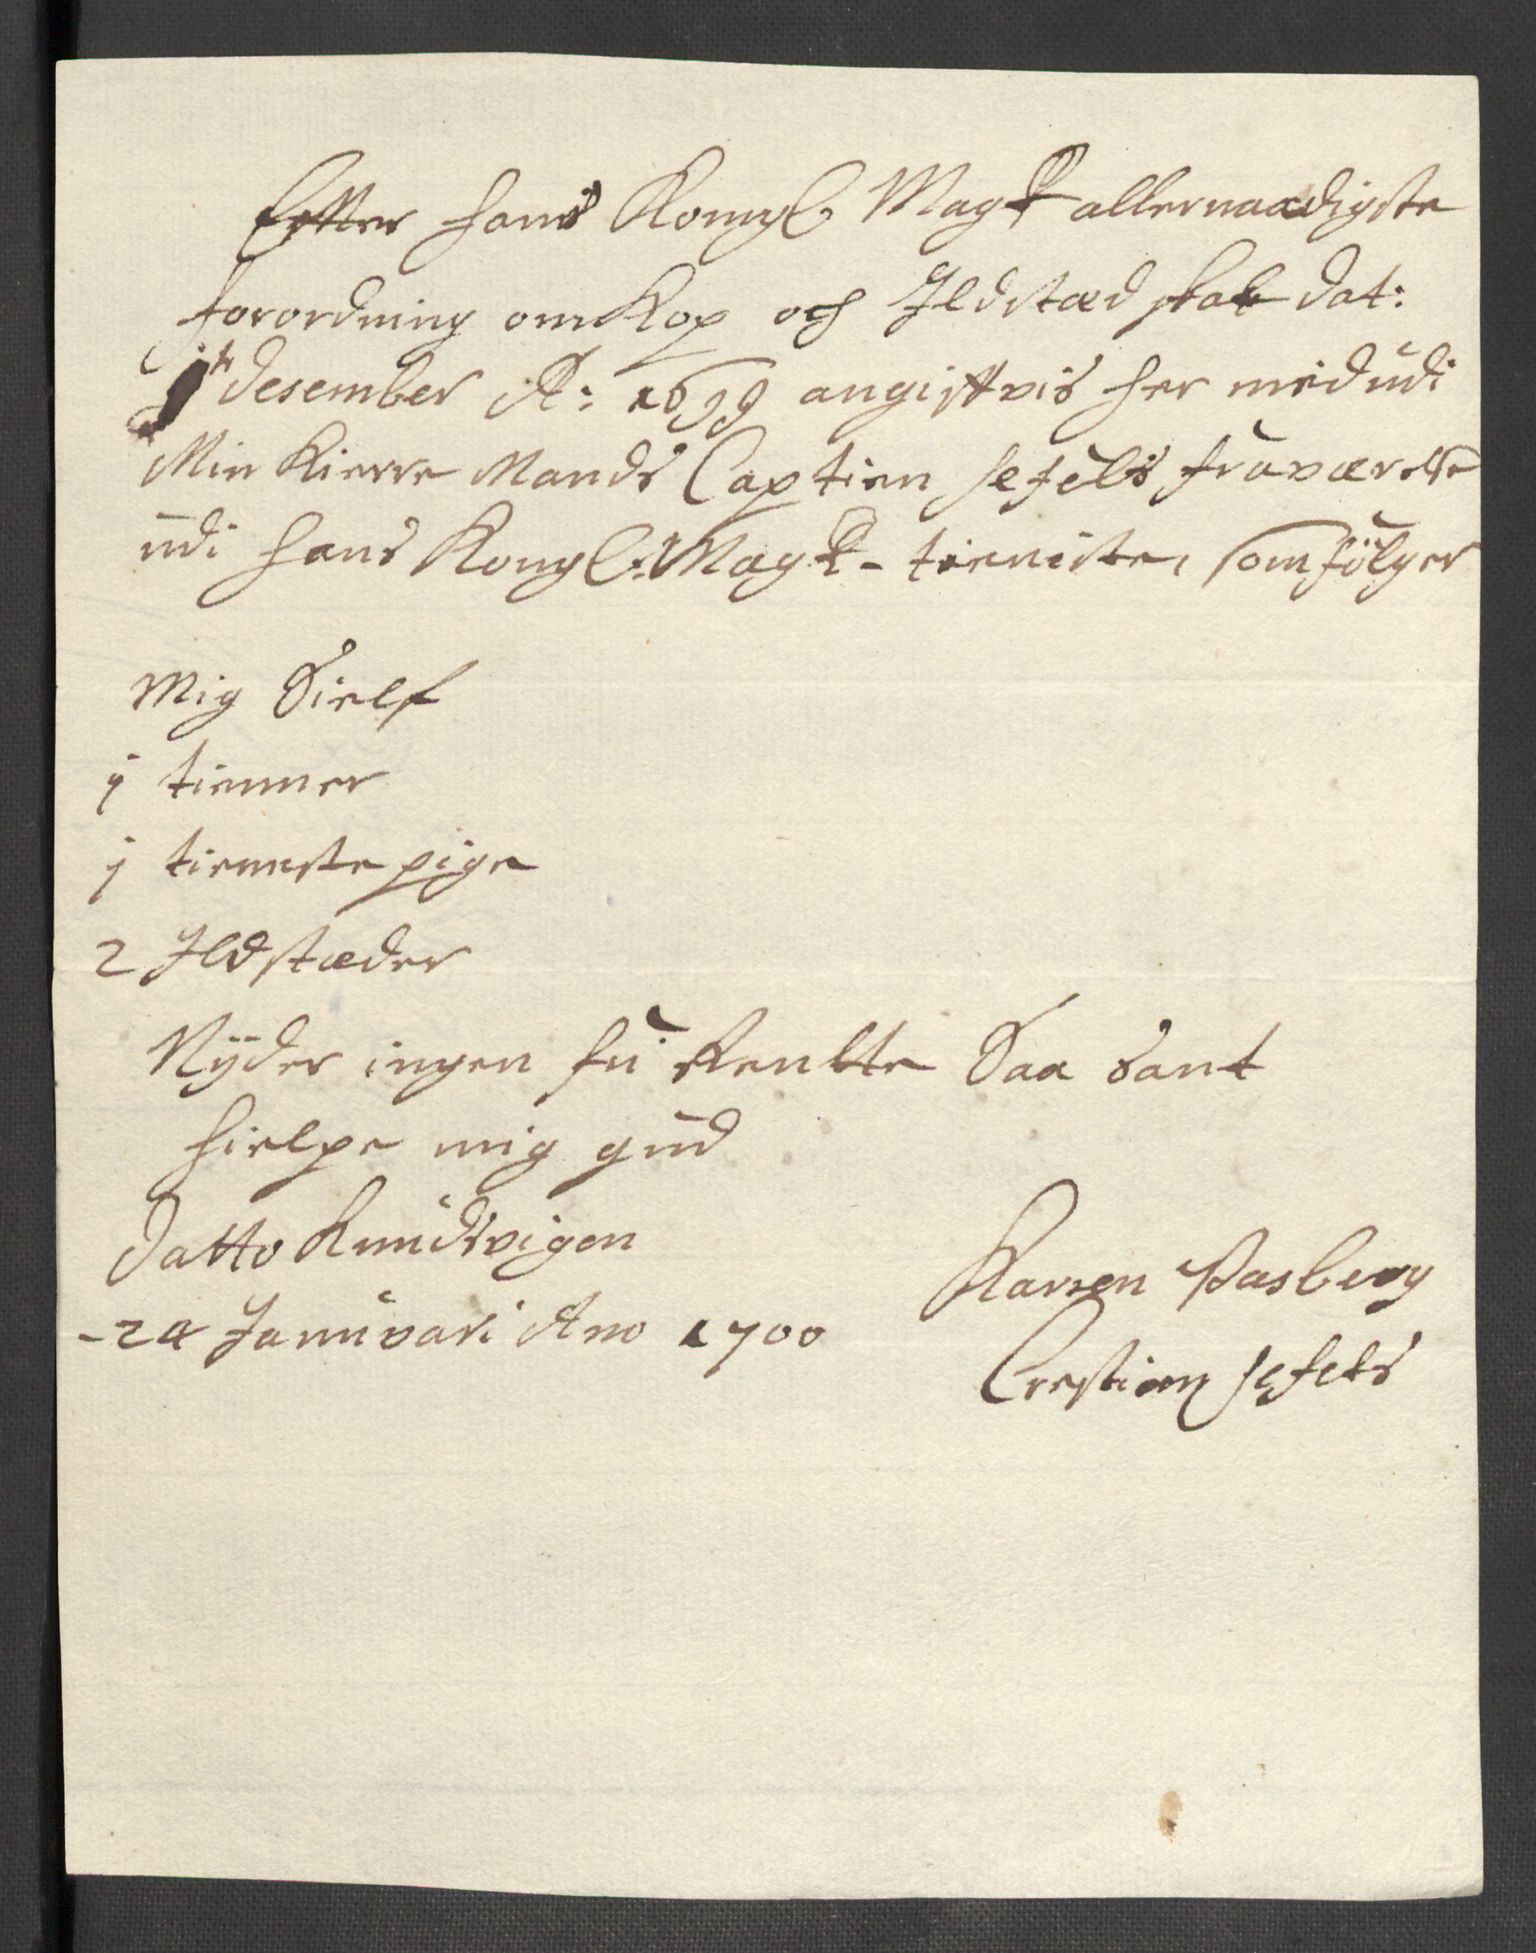 Efter hans Kongl. Mayt allernaadigste
forordning om Kop och Ildstæd skat dat:
1t desember Ao: 1699 angifvis her med udi
Min Kierre Mands Captien Sefels fraværelse
udi hans Kongl: Mayt- tieniste, som følger
Mig Sielf
j tienner
j tienneste pige
2 Ildstæder
Nyder ingen fri Renlte Saa Sant
hielpe mig gud
Datto Knudsvigen
-24 Januvari Ano 1700
Karren Pasberg
Crestian Sefels